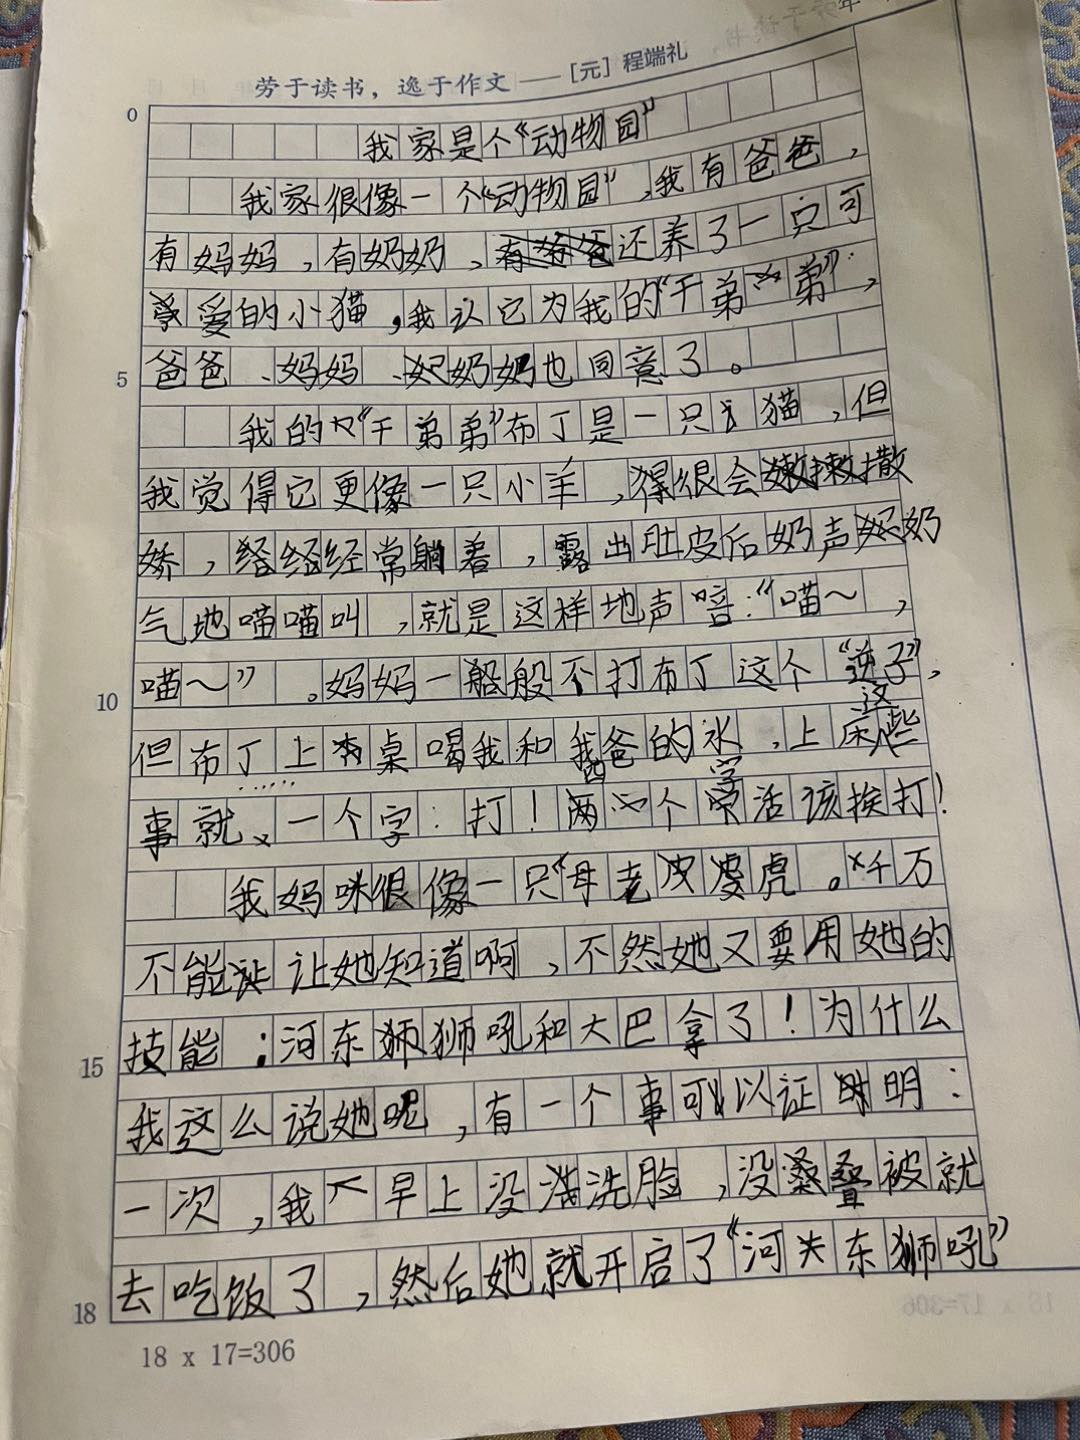 劳于读书，逸于作文——［元］程端礼
0
我家是个“动物园”
我家很像一个“动物园”，我有爸爸，
有妈妈，有奶奶，还养了一只可
爱的小猫，我认它为我的“干弟弟”，
5
爸爸、妈妈、奶奶也同意了。
我的“干弟弟”布丁是一只猫，但
我觉得它更像一只小羊，很会撒
娇，经常躺着，露出肚皮后奶声奶
气地喵喵叫，就是这样地声音：“喵～，
10
喵～”。妈妈一般不打布丁这个“逆子”，
但布丁上桌喝我和爸爸的水，上床这些
事就一个字：打！两个字活该挨打！
我妈咪很像一只“母老虎。千万
不能让她知道啊，不然她又要用她的
15
技能：河东狮吼和大巴拿了！为什么
我这么说她呢，有一个事可以证明：
一次，我早上没洗脸，没叠被就
18
去吃饭了，然后她就开启了“河东狮吼”
18 x 17=306